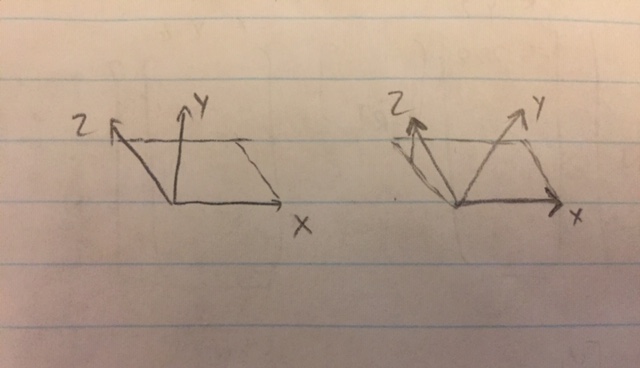 Z Y X
Z Y X